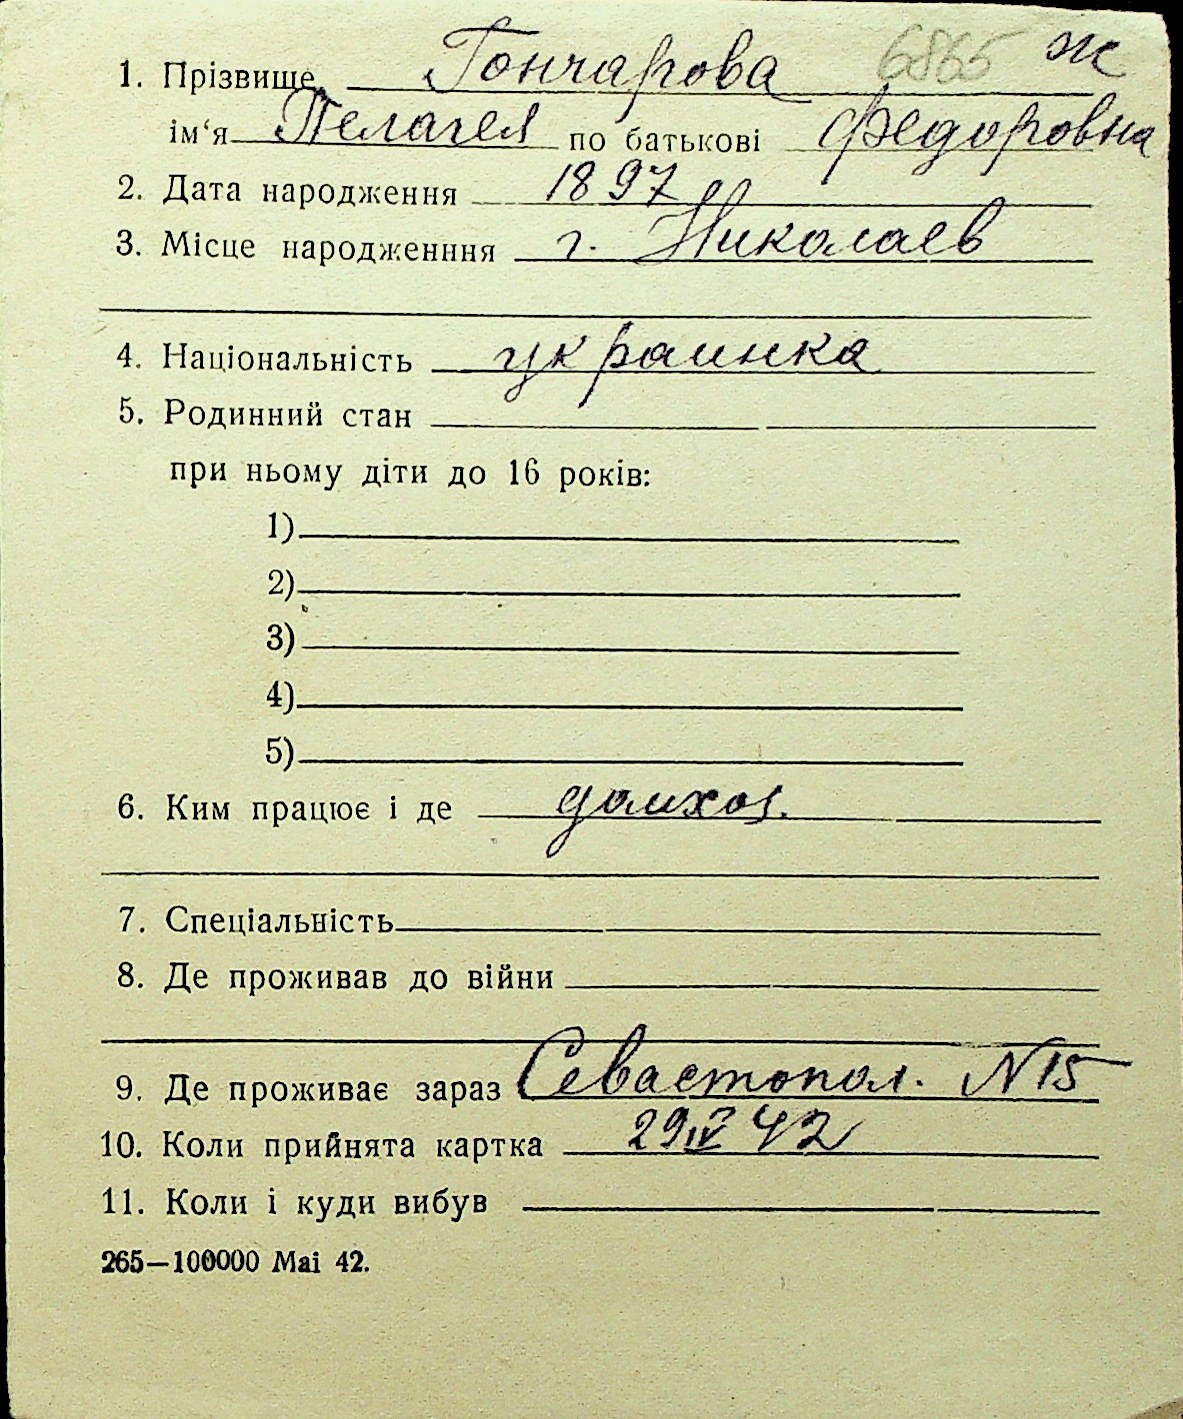 6865 ж
1. Прізвище Гончарова
ім‘я Пелагея по батькові Федоровна
2. Дата народження 1897
3. Місце народженння г. Николаев
4. Національність украинка
5. Родинний стан
при ньому діти до 16 років:
1)
2)
3)
4)
5)
6. Ким працює і де домхоз.
7. Спеціальність
8. Де проживав до війни
9. Де проживає зараз Севастопол. N 15
10. Коли прийнята картка 29 IV 42
11. Коли і куди вибув
265—100000 Mai 42.